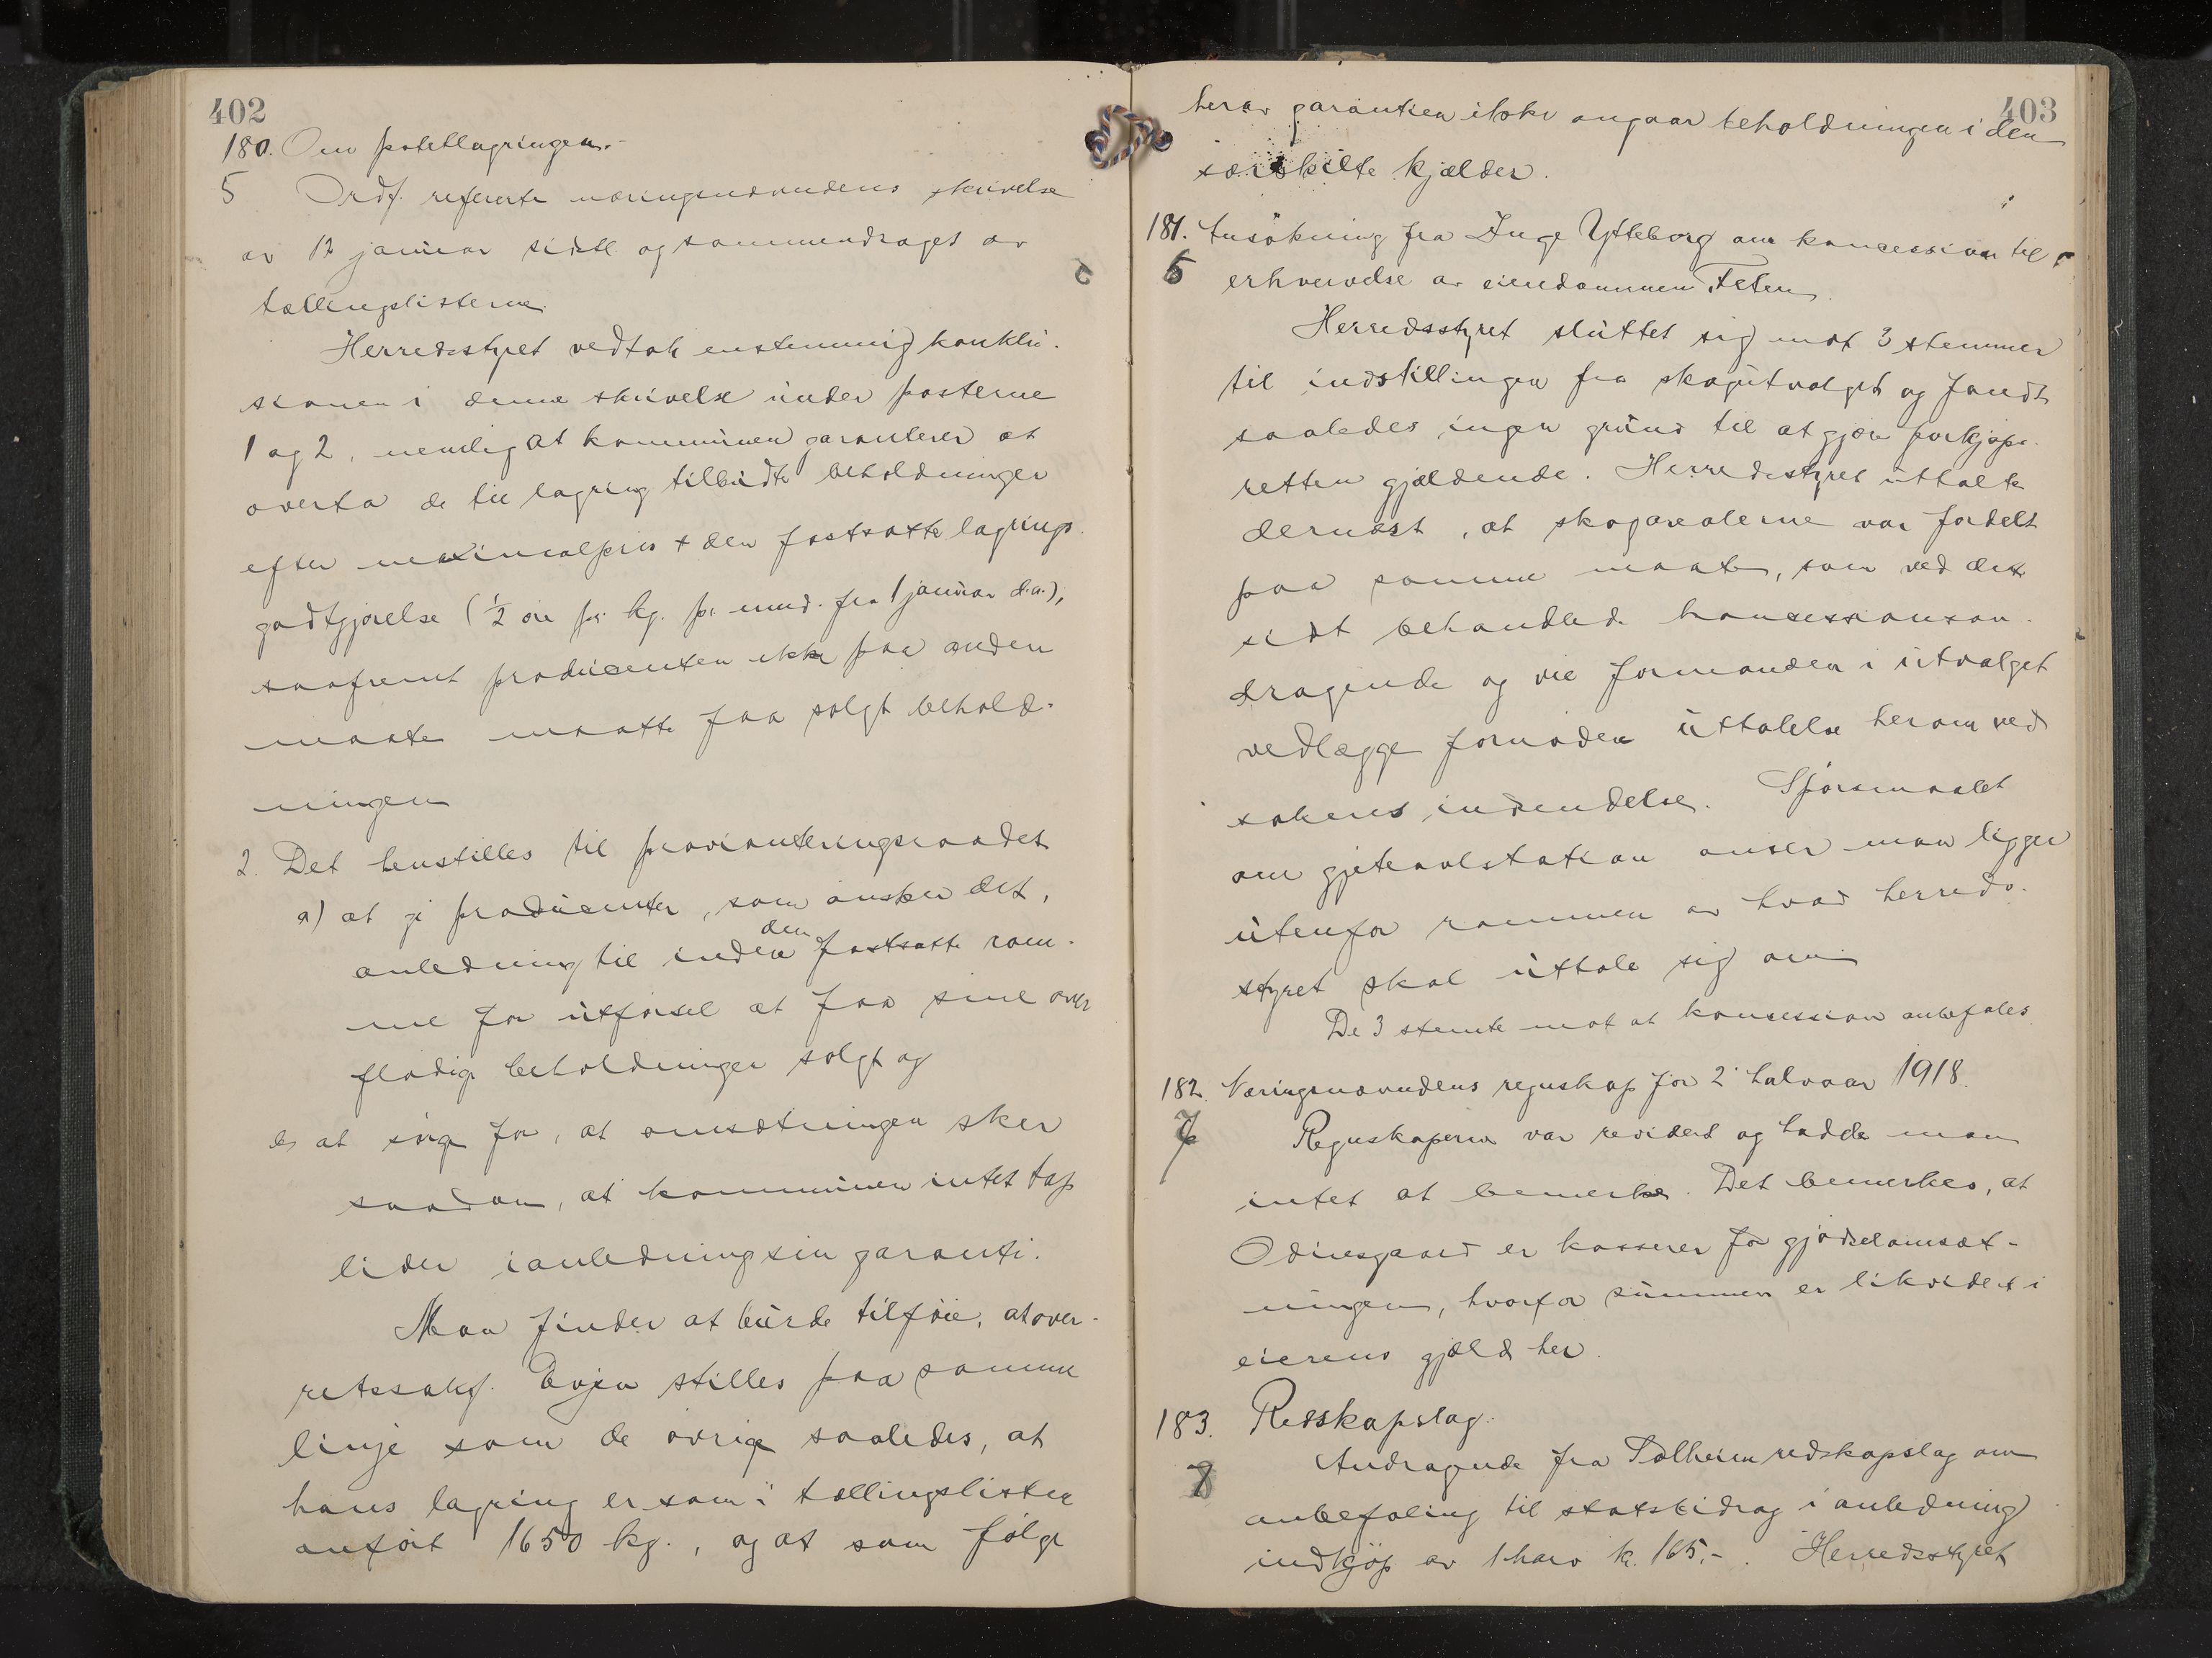 402
180. Om potetlagringen.-
5 Ordf. refererte næringsnævndens skrivelse
av 12 januar sidstl. og sammendraget av
tællingslisterne.
Herredsstyret vedtok enstemmig konklu-
sionen i denne skrivelse under posterne
1 og 2, nemlig at kommunen garanterer at
overta de til lagring tilbudte beholdninger
efter maximalpris + den fastsatte lagrings-
godtgjørelse (½ øre pr. kg. pr. mnd. fra 1 januar d.a.),
saafremt producenten ikke paa anden
maate maatte faa solgt behold-
ningen
2. Det henstilles til provianteringsraadet
a) at gi producenter, som ønsker det,
anledning til inden den fastsatte ram-
me for utførsel at faa sine over
flødige beholdninger solgt og
b) at sørge for, at omsætningen sker
saadan, at kommunen intet tap
lider i anledning sin garanti.
Man finder at burde tilføie, at over-
retssakf. Evjen stilles paa samme
linje som de øvrige saaledes, at
hans lagring er som i tællingslisten
anført 1650 kg., og at som følge
403
herav garantien ikke angaar beholdningen i den
særskilte kjælder.
181. Ansøkning fra Inge Ytteborg om koncession til
5 erhvervelse av eiendommen Feten.
Herredsstyret sluttet sig mot 3 stemmer
til indstillingen fra skogutvalget og fandt
saaledes ingen grund til at gjøre forkjøps-
retten gjældende. Herredsstyret uttalte
dernæst, at skogarealerne var fordelt
paa samme maate, som ved det
sidst behandlede koncessionsan-
dragende og vil formanden i utvalget
vedlægge fornøden uttalelse herom ved
sakens indsendelse. Spørsmaalet
om gjeteavlstation anser man ligger
utenfor rammen av hvad herreds-
styret skal uttale sig om
De 3 stemte mot at koncession anbefales.
182. Næringsnævndens regnskap for 2' halvaar 1918.
7 Regnskaperne var revidert og hadde man
intet at bemerke. Det bemerkes, at
Odinsgaard er kasserer for gjødselomsæt-
ningen, hvorfor summen er likvidert i
eierens gjæld her.
183. Redskapslag.
8 Andragende fra Solheim redskapslag om
anbefaling til statsbidrag i anledning
indkjøp av 1 harv k. 165,-. Herredsstyret